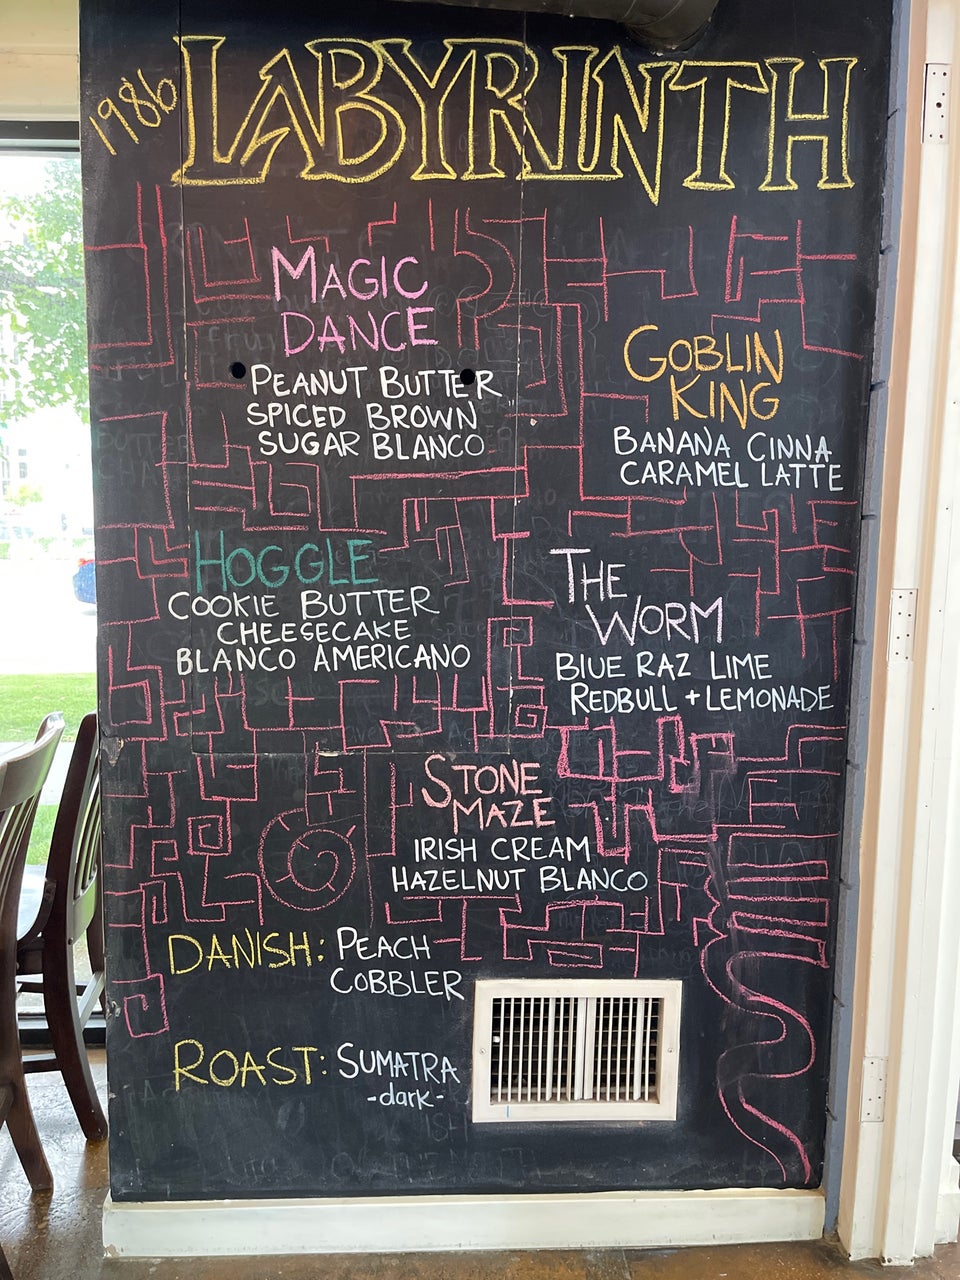 1986 LABYRINTH
MAGIC
DANCE
PEANUT BUTTER
SPICED BROWN
SUGAR BLANCO
GOBLIN
KING
BANANA CINNA
CARAMEL LATTE
HOGGLE
COOKIE BUTTER
CHEESECAKE
BLANCO AMERICANO
THE
WORM
BLUE RAZ LIME
REDBULL + LEMONADE
STONE
MAZE
IRISH CREAM
HAZELNUT BLANCO
DANISH: PEACH
COBBLER
ROAST: SUMATRA
-dark-